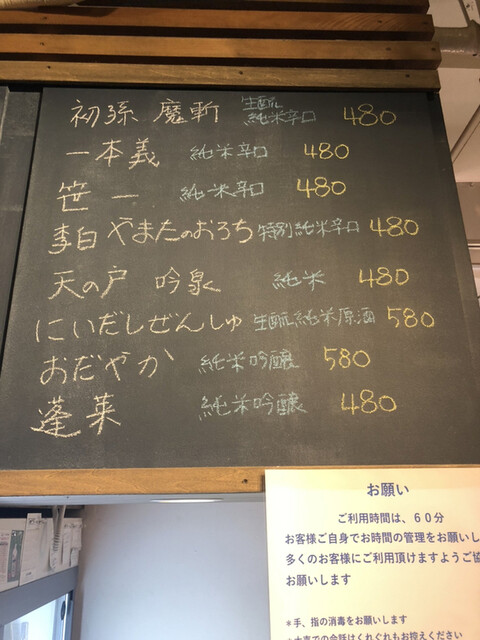 初孫 魔斬 生酛 純米辛口 480
一本義 純米辛口 480
笹一 純米辛口 480
李白 やまたのおろち 特別純米辛口 480
天の戸 吟泉 純米 480
にいだしぜんしゅ 生酛純米原酒 580
おだやか 純米吟醸 580
蓬莱 純米吟醸 480
お願い
ご利用時間は、60分
お客様ご自身でお時間の管理をお願いし
多くのお客様にご利用頂けますようご協
お願いします
*手、指の消毒をお願いします
*大声での会話はくれぐれもお控えください